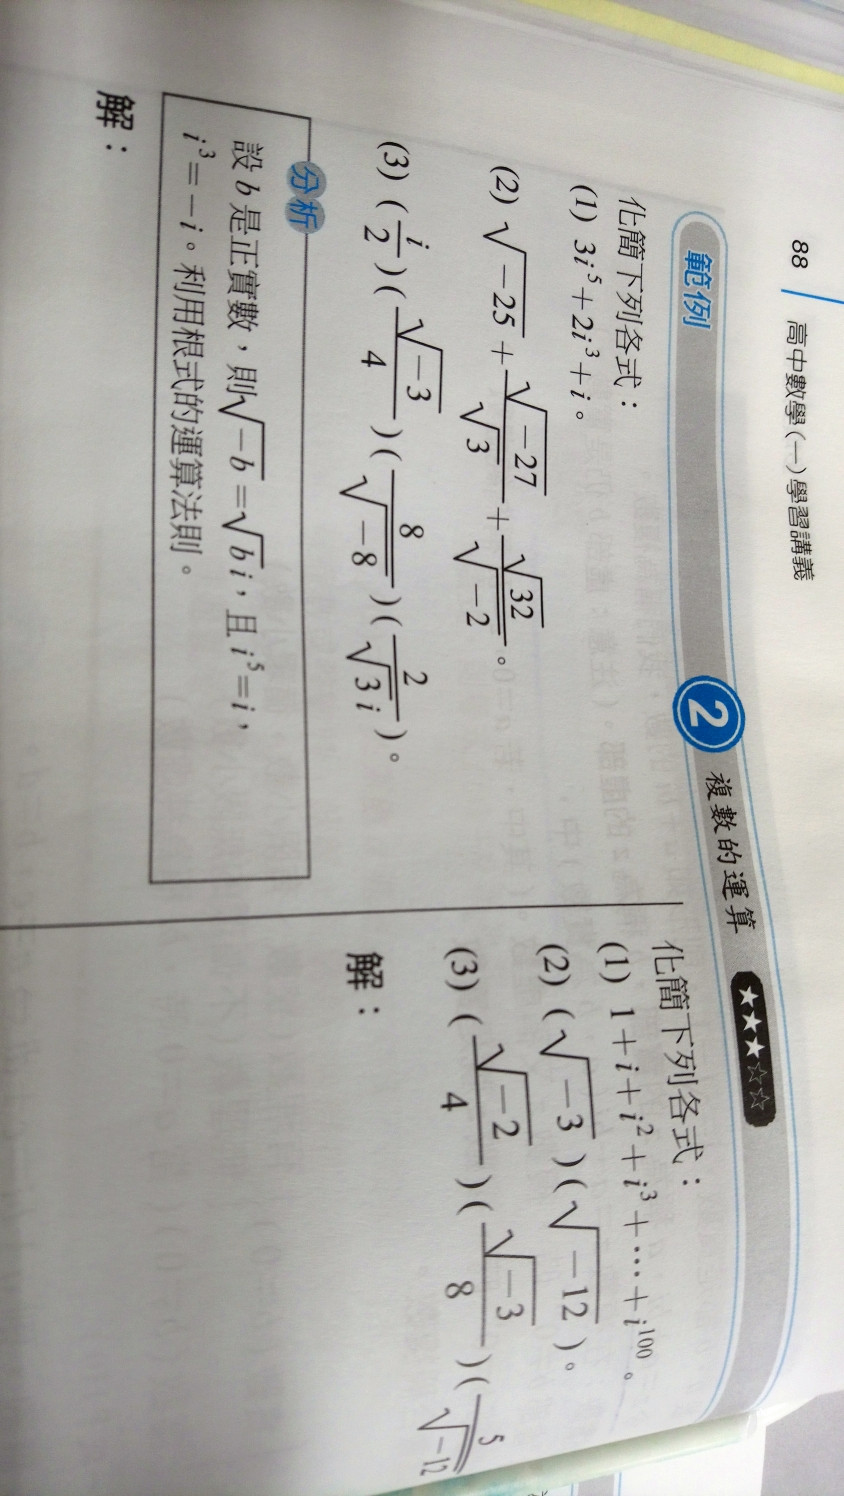 88 高中數學(一)學習講義
範例 2 複數的運算 ★★★☆☆
化簡下列各式：
(1) 3i⁵+2i³+i。
(2) √−25 + √−27/√3 + √32/√−2。
(3) (i/2)(√−3/4)(8/√−8)(2/√3 i)。
分析
設 b 是正實數，則√−b=√b i，且 i⁵=i，
i³=−i。利用根式的運算法則。
解：
化簡下列各式：
(1) 1+i+i²+i³+…+i¹⁰⁰。
(2) (√−3)(√−12)。
(3) (√−2/4)(√−3/8)(5/√−12
解：